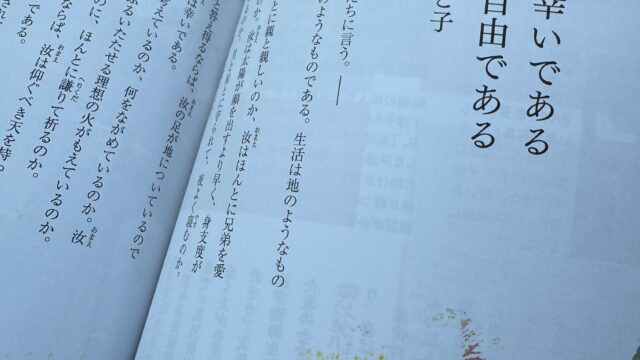 幸いである
自由である
と子
ちに言う。――
のようなものである。生活は地のようなもの
とに親と親しいのか、汝はほんとに兄弟を愛
は太陽が顔を出すより早く、
身支度が
夜よく寝むのか。
と答え得るならば、汝の足が地についているので
は幸いである。
えているのか、何をながめているのか。
ふるいたたせる理想の火がもえているのか。汝
のに、ほんとに謙りて祈るのか。
ならば、汝は仰ぐべき天を持つ
である。